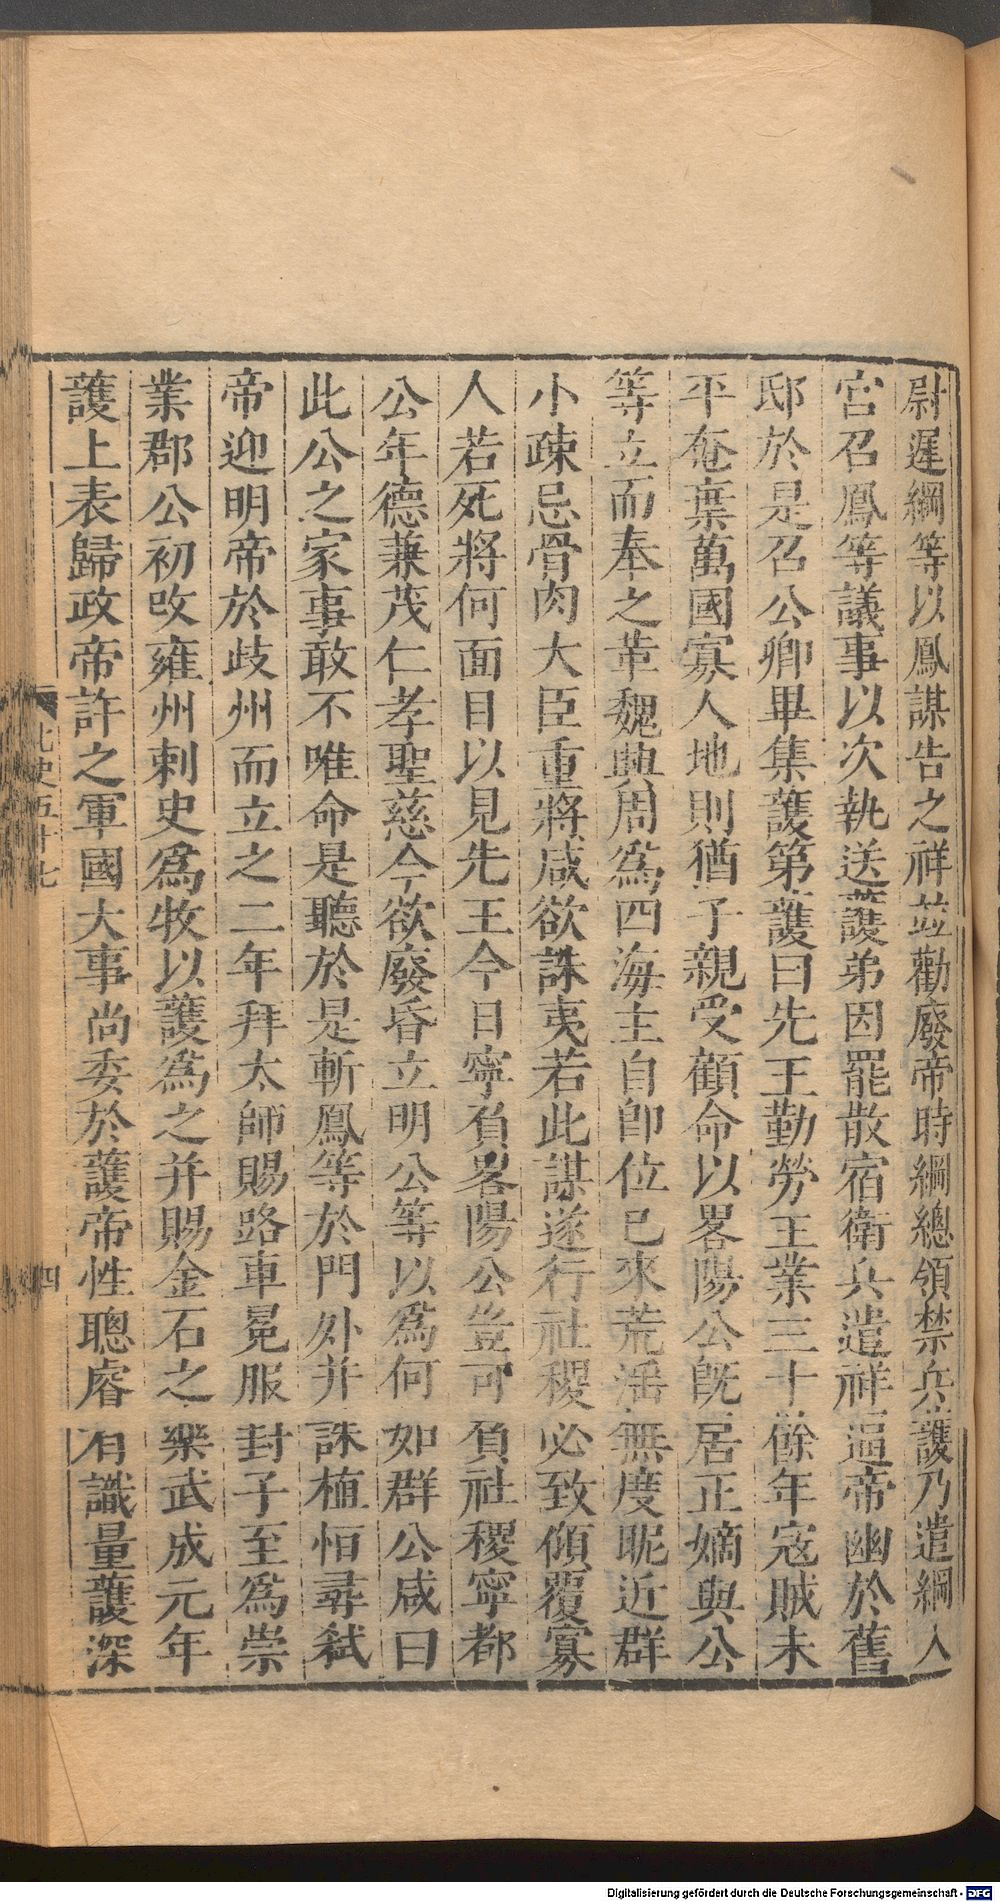 尉遲綱等以鳳謀告之祥並勸廢帝時綱總領禁兵護乃遣綱入
宮召鳳等議事以次執送護弟因罷散宿衛兵遣祥逼帝幽於舊
邸於是召公卿畢集護第護曰先王勤勞王業三十餘年寇賊未
平奄棄萬國寡人地則猶子親受顧命以畧陽公旣居正嫡與公
等立而奉之革魏興周爲四海主自卽位已來荒淫無度昵近群
小疎忌骨肉大臣重將咸欲誅夷若此謀遂行社稷必致傾覆寡
人若死將何面目以見先王今日寧負畧陽公豈可負社稷寧都
公年德兼茂仁孝聖慈今欲廢昏立明公等以爲何如群公咸曰
此公之家事敢不唯命是聽於是斬鳳等於門外并誅植恒尋弑
帝迎明帝於歧州而立之二年拜太師賜路車冕服封子至爲崇
業郡公初改雍州刺史爲牧以護爲之并賜金石之樂武成元年
護上表歸政帝許之軍國大事尚委於護帝性聰睿有識量護深
北史五十七
四
Digitalisierung gefördert durch die Deutsche Forschungsgemeinschaft - DFG